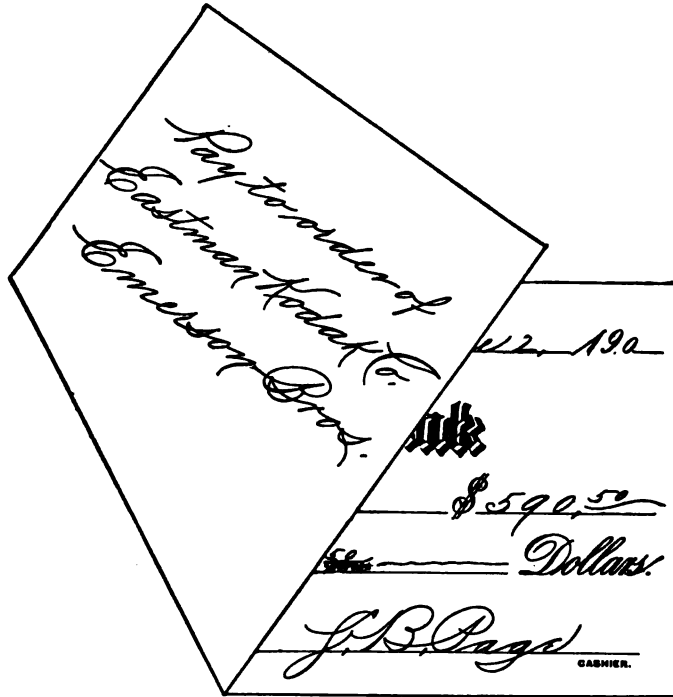 Pay to order of
Eastman Kodak Co.
Emerson Bros.
2, 190
$ 590, 50
50 Dollars.
J. B. Page
CASHIER.